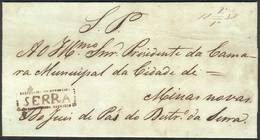 S. P.
Ao Illmo Snr. Prezidente da Cama
ra Municipal da Cidade de =
SERRA
Minas novas.
Do Juis de Pás do Distr. da Serra.